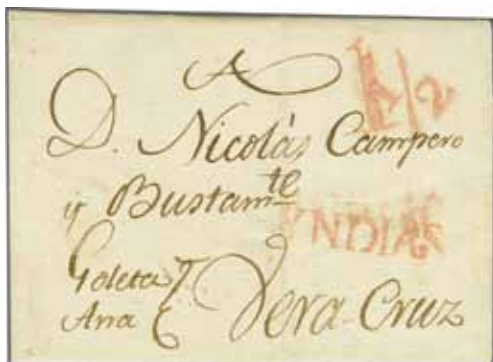 A
D. Nicolás Campero
y Bustam.te
YNDIAS
Goleta
Ana
Vera-Cruz